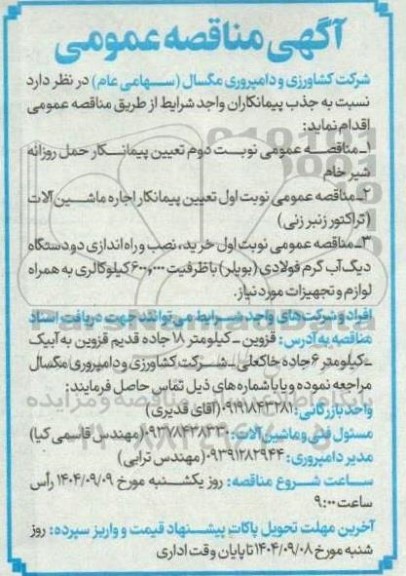 آگهی مناقصه عمومی
شرکت کشاورزی و دامپروری مگسال (سهامی عام) در نظر دارد
نسبت به جذب پیمانکاران واجد شرایط از طریق مناقصه عمومی
اقدام نماید:
۱ـ مناقصه عمومی نوبت دوم تعیین پیمانکار حمل روزانه
شیر خام
۲ـ مناقصه عمومی نوبت اول تعیین پیمانکار اجاره ماشین آلات
(تراکتور زنبر زنی)
۳ـ مناقصه عمومی نوبت اول خرید، نصب و راه اندازی دو دستگاه
دیگ آب گرم فولادی (بویلر) با ظرفیت ۶۰۰,۰۰۰ کیلوکالری به همراه
لوازم و تجهیزات مورد نیاز.
افراد و شرکت های واجد شرایط می توانند جهت دریافت اسناد
مناقصه به آدرس: قزوین ـ کیلومتر ۱۸ جاده قدیم قزوین به آبیک
ـ کیلومتر ۶ جاده خاکعلی ـ شرکت کشاورزی و دامپروری مگسال
مراجعه نموده و یا با شماره های ذیل تماس حاصل فرمایند:
واحد بازرگانی: ۰۹۱۹۱۸۴۳۲۸۱ (آقای قدیری)
مسئول فنی و ماشین آلات: ۰۹۳۷۸۴۳۸۳۳۰ (مهندس قاسمی کیا)
مدیر دامپروری: ۰۹۳۹۱۲۸۲۹۴۴ (مهندس ترابی)
ساعت شروع مناقصه: روز یکشنبه مورخ ۱۴۰۴/۰۹/۰۹ رأس
ساعت ۹:۰۰
آخرین مهلت تحویل پاکات پیشنهاد قیمت و واریز سپرده: روز
شنبه مورخ ۱۴۰۴/۰۹/۰۸ تا پایان وقت اداری